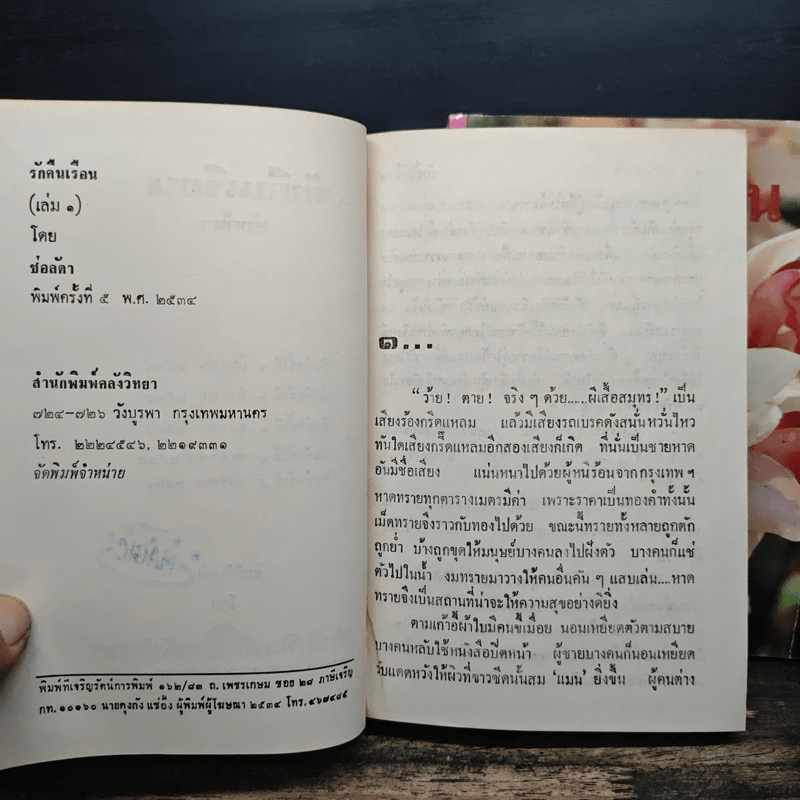 รักคืนเรือน
(เล่ม ๑)
โดย
ช่อลัดา
พิมพ์ครั้งที่ ๕ พ.ศ. ๒๕๓๔
สำนักพิมพ์คลังวิทยา
๗๒๔-๗๒๖ วังบูรพา กรุงเทพมหานคร
โทร. ๒๒๒๔๕๔๖, ๒๒๑๙๓๓๑
จัดพิมพ์จำหน่าย
พิมพ์ที่เจริญรัตน์การพิมพ์ ๑๖๒/๘๓ ถ. เพชรเกษม ซอย ๒๘ ภาษีเจริญ
กท. ๑๐๑๖๐ นายคุงกัง แซ่อึ้ง ผู้พิมพ์ผู้โฆษณา ๒๕๓๔ โทร. ๔๖๗๔๘๕
๑...
“ว้าย! ตาย! จริง ๆ ด้วย......ผีเสื้อสมุทร!” เป็น
เสียงร้องกรีดแหลม แล้วมีเสียงรถเบรคดังสนั่นหวั่นไหว
ทันใดเสียงกรี๊ดแหลมอีกสองเสียงก็เกิด ที่นั่นเป็นชายหาด
อันมีชื่อเสียง แน่นหนาไปด้วยผู้หนีร้อนจากกรุงเทพ ฯ
หาดทรายทุกตารางเมตรมีค่า เพราะราคาเป็นทองคำทั้งนั้น
เม็ดทรายจึงราวกับทองไปด้วย ขณะนี้ทรายทั้งหลายถูกตัก
ถูกย่ำ บ้างถูกขุดให้มนุษย์บางคนลงไปฝังตัว บางคนก็แช่
ตัวไปในน้ำ งมทรายมาวางให้คนอื่นคัน ๆ แสบเล่น....หาด
ทรายจึงเป็นสถานที่น่าจะให้ความสุขอย่างดียิ่ง
ตามเก้าอี้ผ้าใบมีคนขี้เมื่อย นอนเหยียดตัวตามสบาย
บางคนหลับใช้หนังสือปิดหน้า ผู้ชายบางคนก็นอนเหยียด
รับแดดหวังให้ผิวที่ขาวซีดนั้นสม ‘แมน’ ยิ่งขึ้น ผู้คนต่าง
น